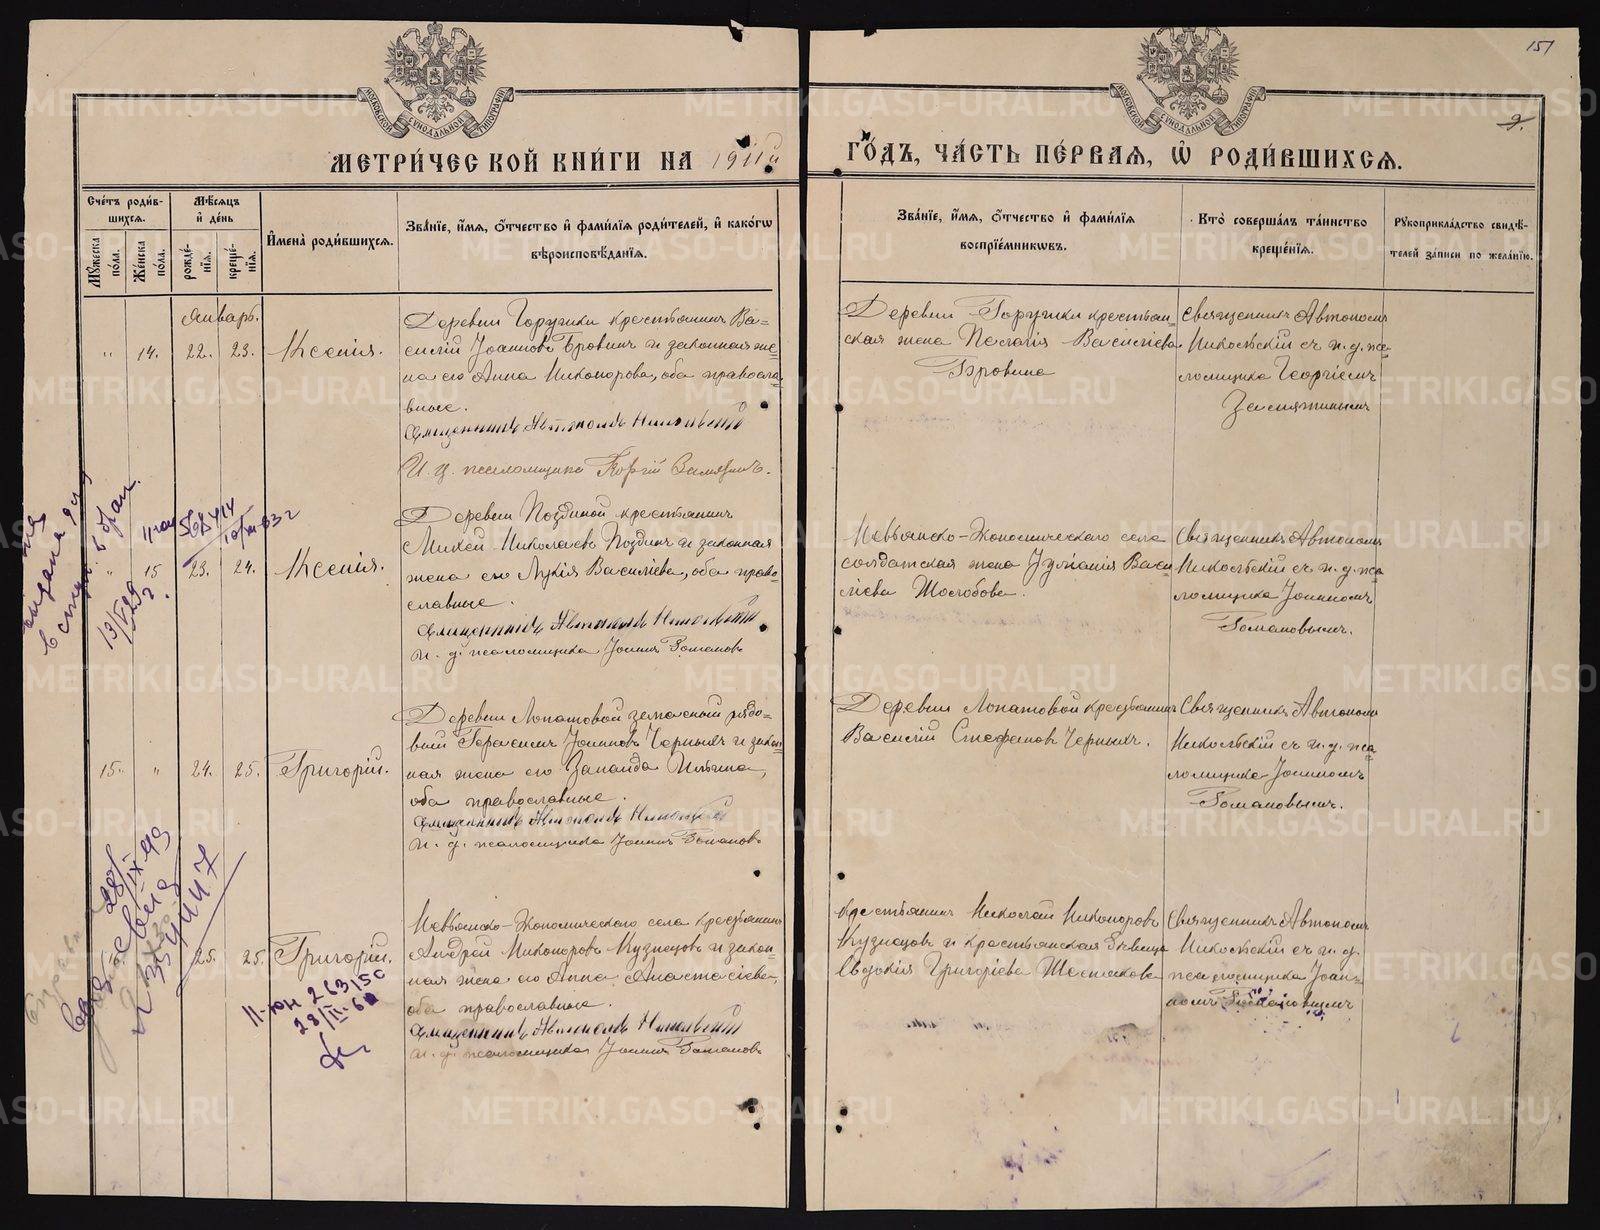 МЕТРИ́ЧЕСКОЙ КНИ́ГИ НА 1911й
ГО́ДЪ, ЧА́СТЬ ПЕ́РВАѦ, Ѡ҆ РОДИ́ВШИХСѦ.
151
9.
Сче́тъ роди́в-
шихсѧ.
Мꙋ́жеска по́ла.
Же́нска по́ла.
Мѣ́сѧцъ и҆ де́нь
рожде́-
нїѧ.
креще́-
нїѧ.
И҆мена̀ роди́вшихсѧ.
Зва́нїе, и҆́мѧ, ѻ҆́тчество и҆ фами́лїѧ роди́телей, и҆ како́гѡ
вѣроисповѣ́данїѧ.
Зва́нїе, и҆́мѧ, ѻ҆́тчество и҆ фами́лїѧ
воспрїе́мникѡвъ.
Кто̀ соверша́лъ та́инство
креще́нїѧ.
Рꙋкоприкла́дство свидѣ́-
телей за́писи по жела́нїю.
Январь.
" 14. 22. 23. Ксенія.
Деревни Горушки крестьянинъ Ва-
силій Іоанновъ Бровинъ и законная же-
на его Анна Никонорова, оба правосла-
вные.
Священникъ Автономъ Никольскій
И. д. псаломщика Георгій Замятинъ.
Деревни Горушки крестьян-
ская жена Пелагія Василіева
Бровина
Священникъ Автономъ
Никольскій съ и. д. пса-
ломщика Георгіемъ
Замятинымъ
" 15 23. 24. Ксенія.
Деревни Поздиной крестьянинъ
Михей Николаевъ Поздинъ и законная
жена его Лукія Василіева, оба право-
славные.
Священникъ Автономъ Никольскій
и. д. псаломщика Іоаннъ Романовъ
Невьянско-Экономическаго села
солдатская жена Іуліанія Васи-
ліева Шолобова.
Священникъ Автономъ
Никольскій съ и. д. пса-
ломщика Іоанномъ
Романовымъ.
15. " 24. 25. Григорій.
Деревни Лопатовой запасный рядо-
вой Герасимъ Іоанновъ Черныхъ и закон-
ная жена его Зинаида Ильина,
оба православные.
Священникъ Автономъ Никольскій
и. д. псаломщика Іоаннъ Романовъ
Деревни Лопатовой крестьянинъ
Василій Стефановъ Черныхъ.
Священникъ Автономъ
Никольскій съ и. д. пса-
ломщика Іоанномъ
Романовымъ.
25. 25. Григорій.
Невьянско-Экономическаго села крестьянинъ
Андрей Никоноровъ Кузнецовъ и закон-
ная жена его Анна Анастасіева,
оба православные.
Священникъ Автономъ Никольскій
и. д. псаломщика Іоаннъ Романовъ
крестьянинъ Николай Никоноровъ
Кузнецовъ и крестьянская дѣвица
Евдокія Григоріева Шестакова
Священникъ Автономъ
Никольскій съ и. д.
псаломщика Іоан-
номъ Романовымъ
II-юн 263150
28/III-60